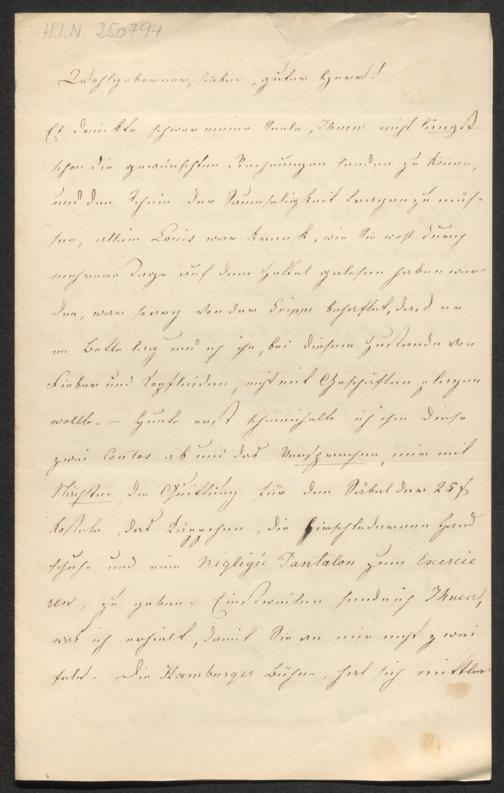 H.I.N. 250794
Wohlgeborner, lieber, guter Herr!
Es drückte schwer meine Seele, Ihnen nicht längst
schon die gewünschten Rechnungen senden zu können,
und den Schein der Saumseligkeit tragen zu müs-
sen, allein Louis war krank, wie Sie wohl durch
mehrere Tage auf dem Zettel gelesen haben wer-
den, war von der Grippe behaftet, daß er
im Bette lag und ich ihn, bei diesem Zustande von
Fieber und Kopfleiden, nicht mit Geschäften plagen
wollte. – Heute erst schmeichelte ich ihm diese
zwei Contos ab und das Versprechen, mir mit
Nächsten die Quittung für den Säbel der 25 f
kostete, das Käppchen, die hirschledernen Hand
schuhe und eine Négligée Pantalon zum Exercie
ren, zu geben. Einstweilen sende ich Ihnen,
was ich erhielt, damit Sie an mir nicht zwei
feln. Die Hamburger Bühne, hat sich mittler